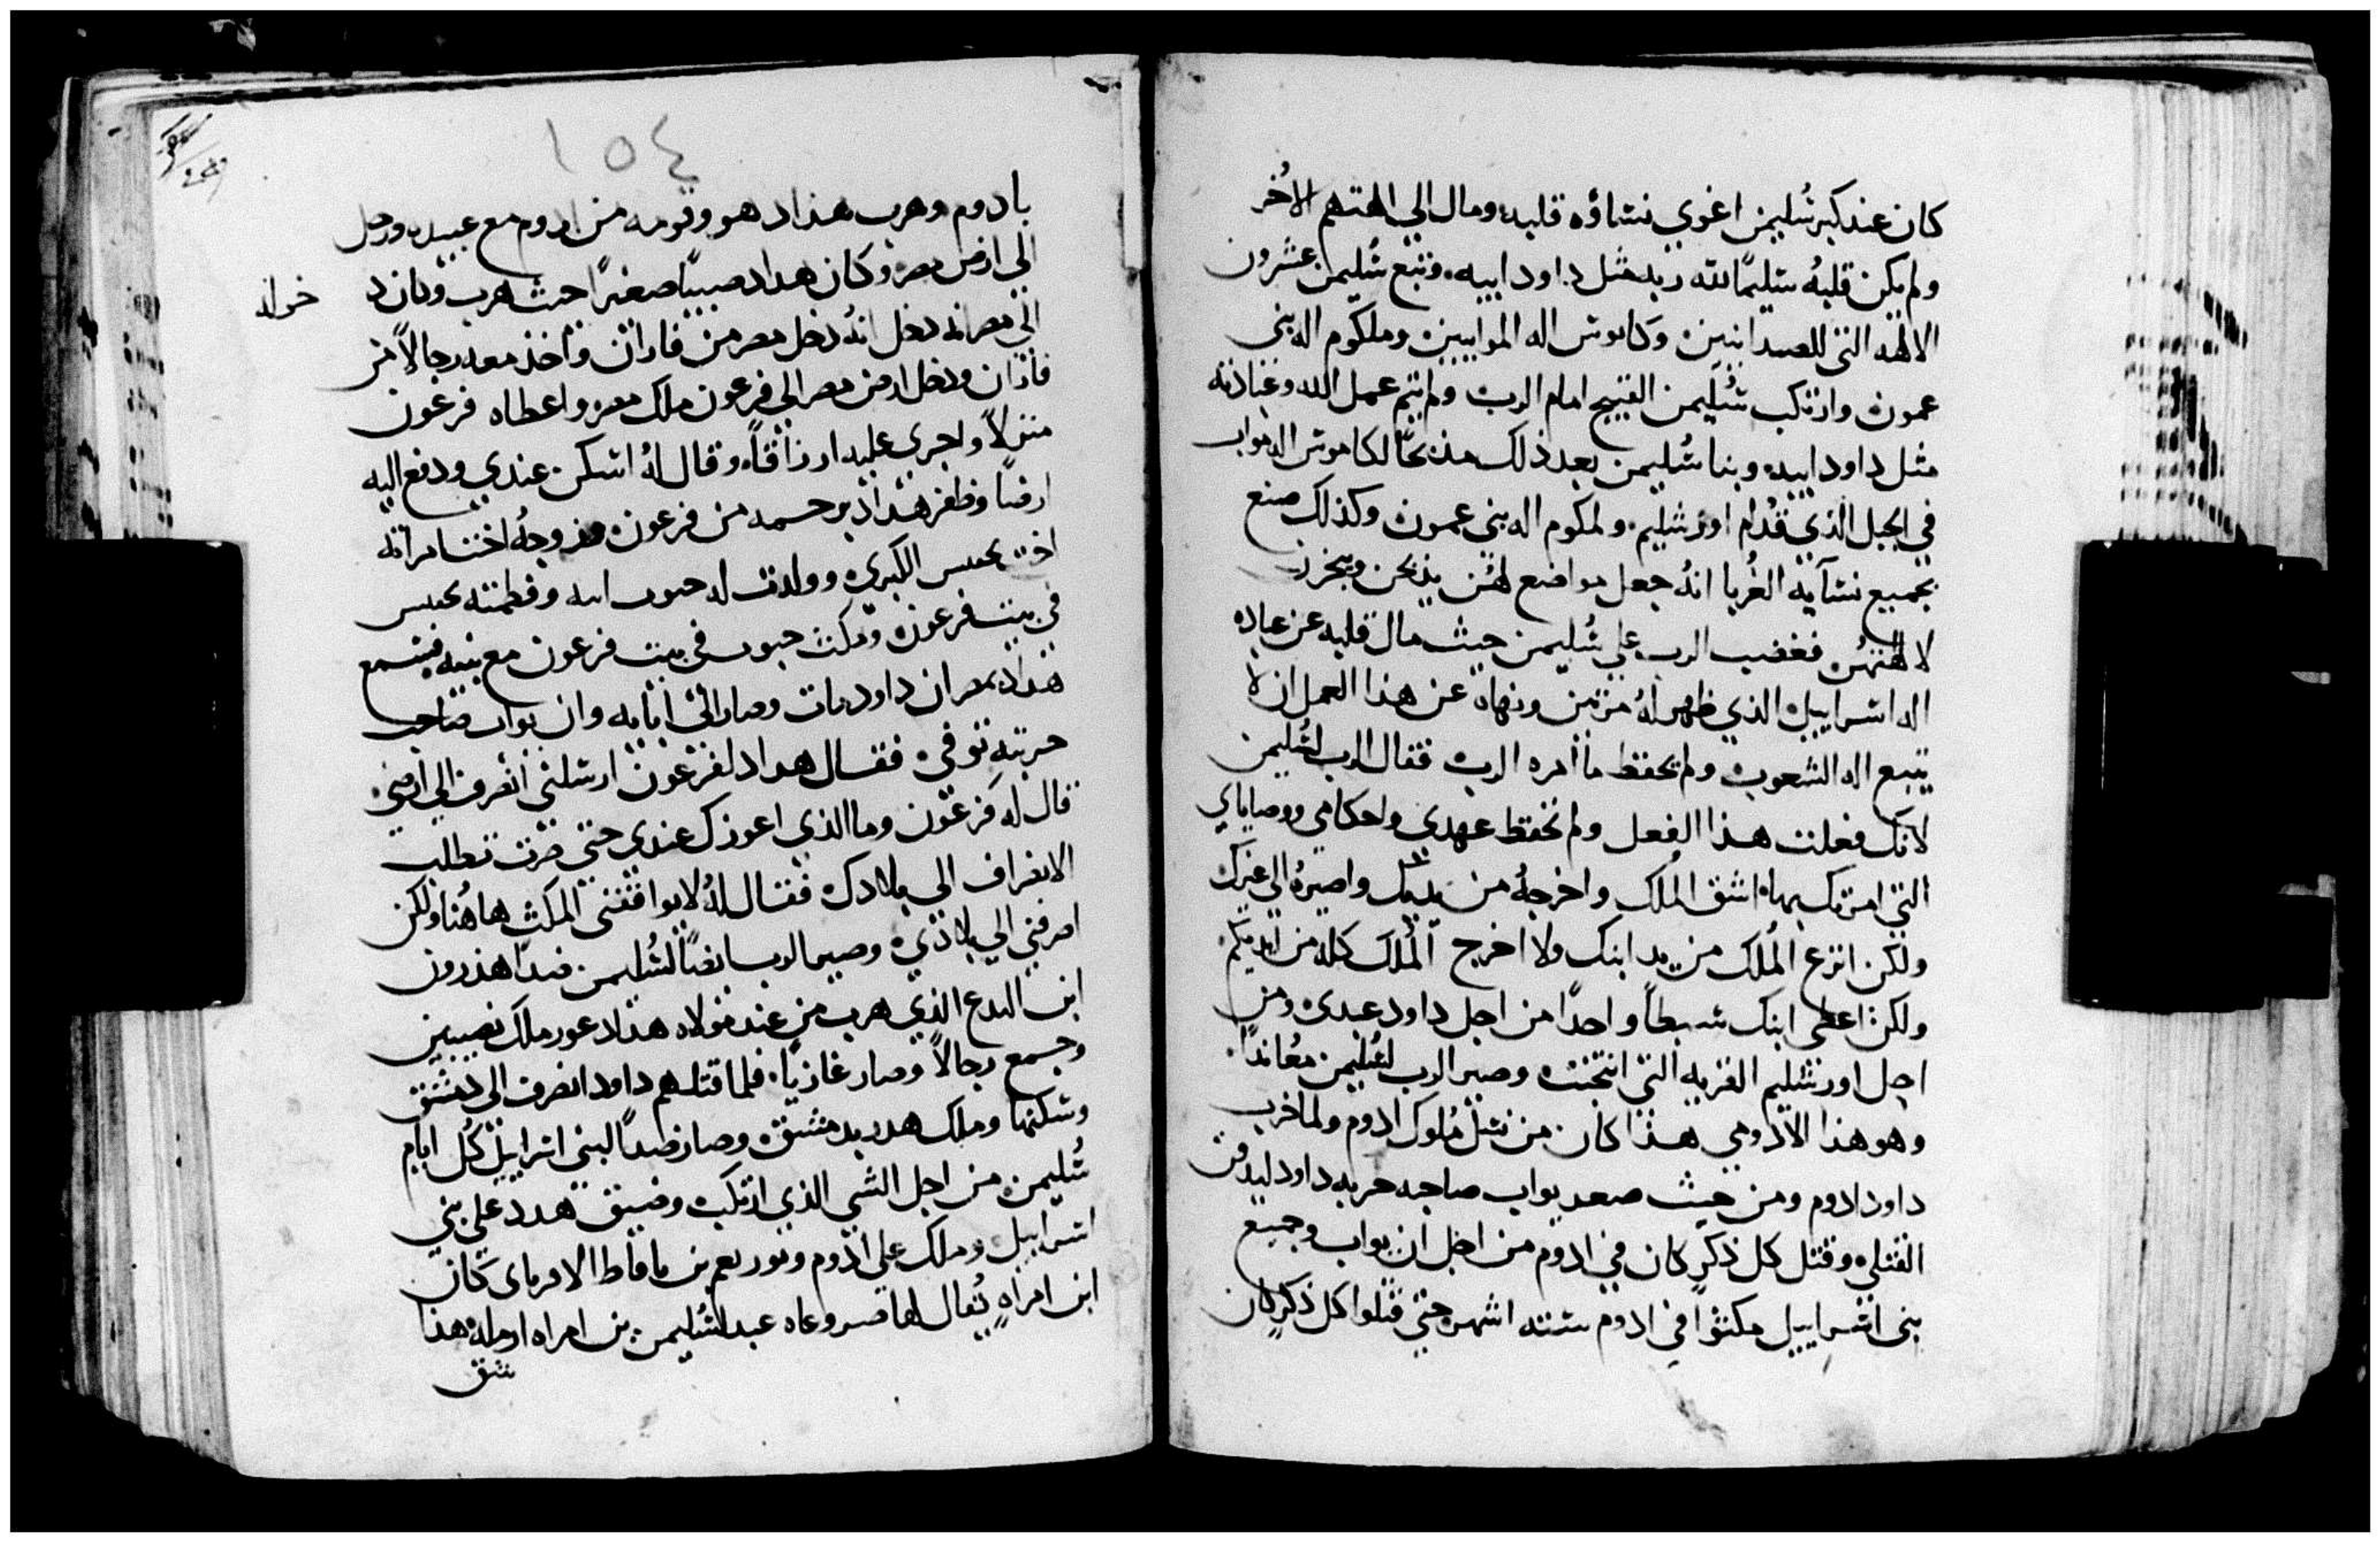 كان عند كبر سُليمن اغوي نساؤه قلبه ومال الي الهتهم الاُخر
ولم يكن قلبهُ سليمًا لله ربه مثل داود ابيه وتبع سُليمن عشرون
الالهه التي للصيدانيين وكاموش اله الموابيين وملكوم اله بني
عمون وارتكب سُليمن القبيح امام الرب ولم يتم عمل الله وعبادته
مثل داود ابيه وبنا سُليمن بعد ذلك مذبحًا لكاموش اله مواب
في الجبل الذي قدُام اورشليم ولمكوم اله بني عمون وكذلك صنع
بجميع نسآيه الغُربا انهُ جعل مواضع لهُن يذبحن ويبخرن
لالهتهُن فغضب الرب علي سُليمن حيث مال قلبه عن عباده
اله اسراييل الذي ظهر لهُ مرتين ونهاه عن هذا العمل ان لا
يتبع اله الشعوب ولم يحفظ ما امره الرب فقال الرب لسُليمن
لانك فعلت هذا الفعل ولم تحفظ عهدي واحكامي ووصاياي
التي امرتك بها اشق المُلك واخرجهُ من يديك واصيرهُ الي غيرك
ولكن انزع المُلك من يد ابنك ولا اخرج المُلك كله من ايديكم
ولكن اعطي ابنك سبطاً واحدًا من اجل داود عبدي ومن
اجل اورشليم القريه التي انتخبت وصير الرب لسُليمن مُعاندًا
وهو هذا الادومي هذا كان من نسل مُلوك ادوم ولما خرب
داود ادوم ومن حيث صعد يواب صاحب حربه داود ليدفن
القتلي وقتل كل ذكرٍ كان في ادوم من اجل ان يواب وجميع
بني اسراييل مكثوا في ادوم ستته اشهر حتي قتلوا كل ذكرٍ كان
١٥٤
بادوم وهرب هداد هو وقومه من ادوم مع عبيده ودخل
الي ارض مصر وكان هداد صبيًا صغيرًا حيث هرب وكان د
الي مصر انه دخل انهُ دخل مصر من فاران واخذ معه رجالاً من
فاران ودخل ارض مصر الي فرعون ملك مصر واعطاه فرعون
منزلاً واجري عليه ارزاقاً وقال لهُ اسكن عندي ودفع اليه
ارضًا وظفر هداد برحمه من فرعون وزوجهُ اخت امراته
اخت تحفيس الكبري وولدت له جنوب ابنه وفطمته تحفيس
في بيت فرعون ومكث جنوب في بيت فرعون مع بنيه فسمع
هداد بمصر ان داود مات وصار الي ابايه وان يواب صاحب
حربته توفي فقال هداد لفرعون ارسلني انصرف الي ارضي
قال له فرعون وما الذي اعوزك عندي حتي صرت تطلب
الانصراف الي بلادك فقال لهُ لا يوافقني المكث هاهُنا ولكن
اصرفني الي بلادي وصير الرب ايضًا لسُليمن ضدًا هذرون
ابن اليدع الذي هرب من عند مولاه هدادعور ملك نصيبين
وجمع رجالاً وصار غازيًا فلما قتلهم داود انصرف الي دمشق
وسكنها وملك هدد بدمشق وصار ضداً لبني اسراييل كُل ايام
سُليمن من اجل الشي الذي ارتكب وضيق هدد علي بني
اسراييل وملك علي ادوم ويوربعم بن ناباط الافرماي كان
ابن امراهٍ يُقال لها صروعاه عبد لسُليمن بن امراه ارمله هذا
شق